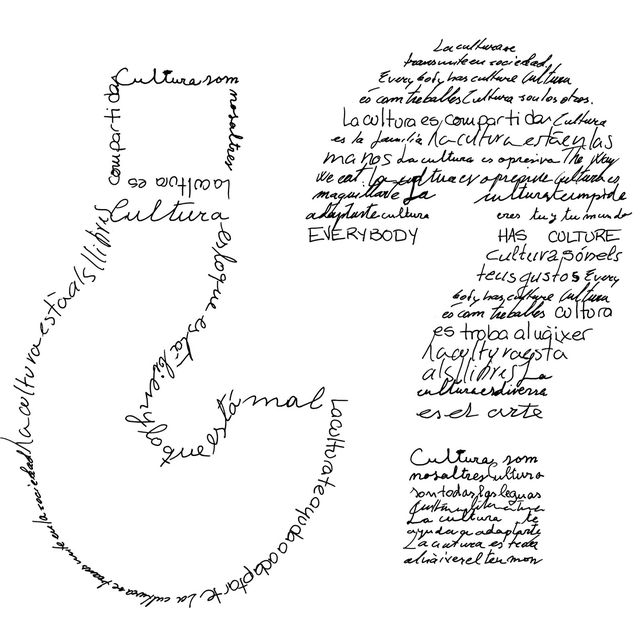 Cultura som
nosaltres
La cultura es
compartida
Cultura
es lo que está bien y lo
que está mal
La cultura te ayuda a adaptarte
La cultura se transmite en la sociedad
La cultura està als llibres
La cultura se
transmite en sociedad
Every body has culture Cultura
és com treballes Cultura son los otros.
La cultura es compartida Cultura
es la familia La cultura está en las
manos La cultura es opresiva The way
we eat. La cultura es opresiva Cultura es
maquillarte La cultura te impide
adaptarte cultura eres tu y tu mundo
EVERYBODY HAS CULTURE
Cultura són els
teus gustos Every
body has culture Cultura
és com treballes cultura
es troba aluixer
la cultura esta
als llibres La
cultura es diversa
es el arte
Cultura, som
nosaltres Cultura
son todas las leguas
La cultura te
ayuda a adaptarte
La cultura es